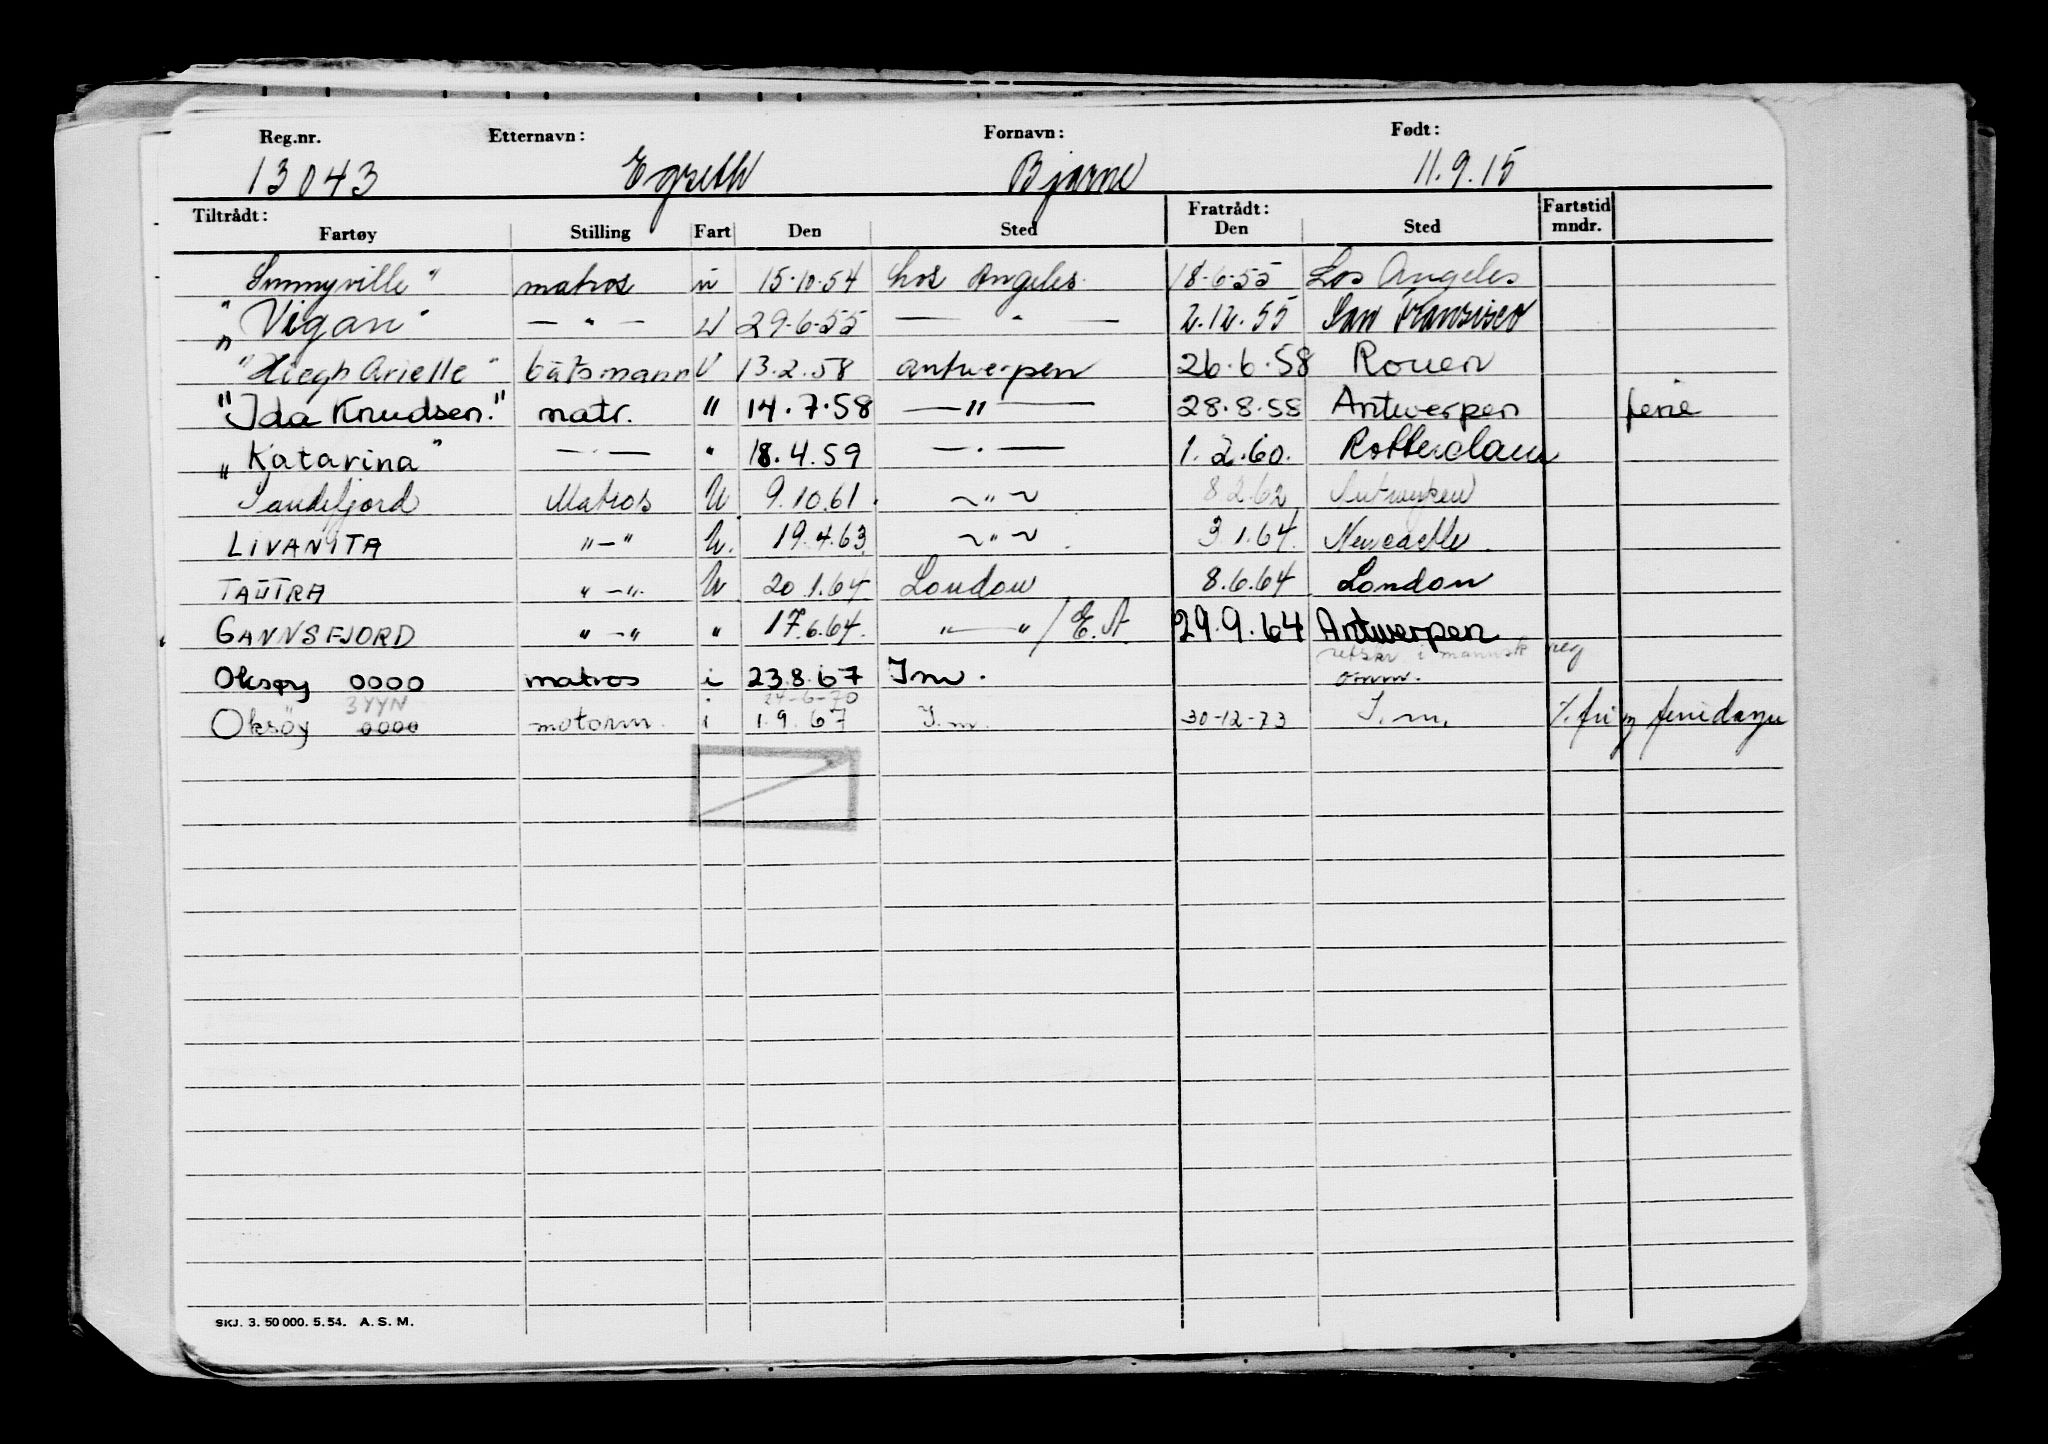 Reg.nr. Etternavn: Fornavn: Født:
13043 Egseth Bjarne 11.9.15
Tiltrådt: Fratrådt: Fartstid
Fartøy Stilling Fart Den Sted Den Sted mndr.
Sunnyville" matros u 15.10.54 Los Angeles 18-6-55 Los Angeles
"Vigan" — " — U 29-6-55 — " — 2.12.55 San Fransisco
"Hiegh Arielle" båtsmann U 13.2.58 Antwerpen 26.6.58 Rouen
"Ida Knudsen." matr. " 14.7.58 —"— 28.8.58 Antwerpen ferie
"Katarina" — · — " 18.4.59 — · — 1.2.60. Rotterdam
Sandefjord Matros U 9.10.61. ~"~ 8.2.62 Antwerpen
LIVANITA "—" U. 19.4.63 ~"~ 3.1.64. Newcastle.
TAUTRA "—" U 20.1.64 London 8.6.64 London
GANNSFJORD "—" " 17.6.64. "—" / E.A. 29.9.64 Antwerpen
i mannsk reg
Oksøy 0000 matros i 23.8.67 I m. omm.
3YYN 24-6-70
Oksöy 0000 motorm. i 1.9.67 I.m. 30-12-73 I.m. %. fri og feriedager
SKJ. 3. 50 000. 5. 54. A. S. M.